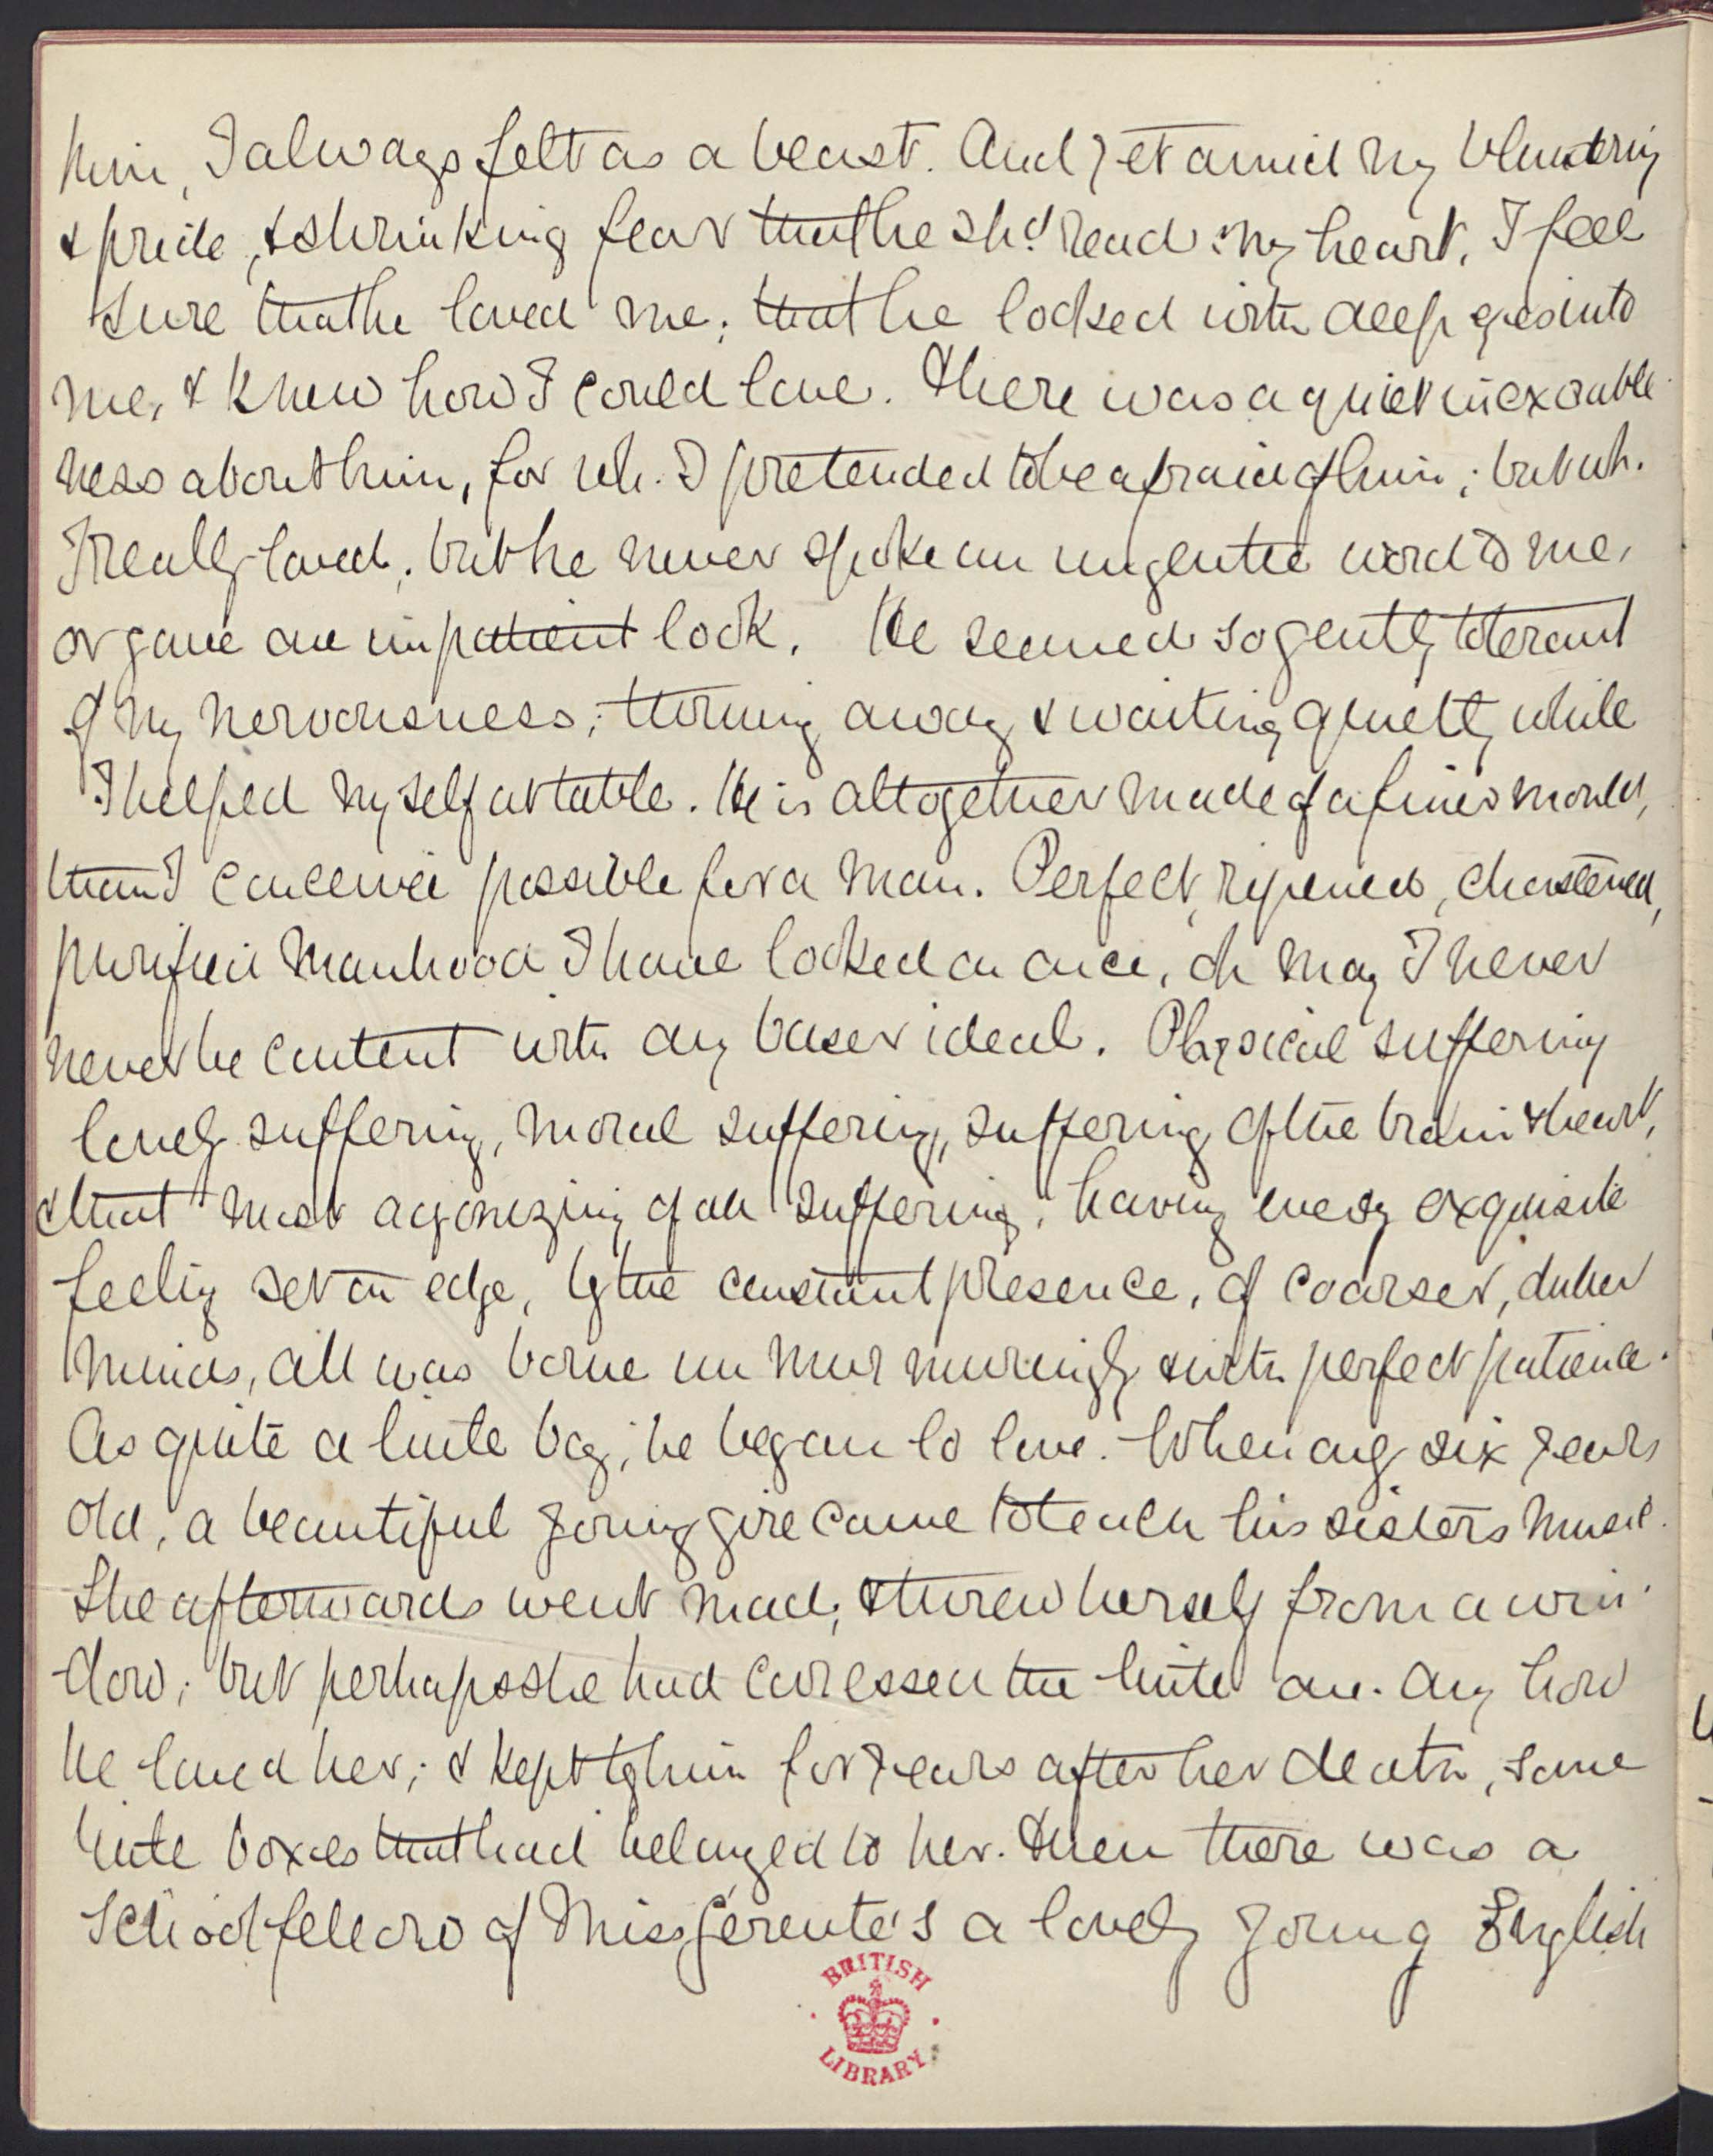 him, I always felt as a beast. And yet amid my blundring
& pride, & shrinking fear that he shd. read my heart, I feel
sure that he loved me; that he looked with deep eyes into
me, & knew how I could love. There was a quiet inexorable-
ness about him, for wh. I pretended to be afraid of him; but wh.
I really loved. but he never spoke an ungentle word to me,
or gave an impatient look. He seemed so gently tolerant
of my nervousness; turning away & waiting quietly while
I helped myself at table. He is altogether made of a finer mould,
than I conceived possible for a man. Perfect, ripened, chastened,
purified manhood I have looked on once, oh may I never
never be content with any baser ideal. Physical suffering
lonely suffering, moral suffering, suffering of the brain & heart,
& that most agonizing of all suffering; having every exquisite
feeling set on edge, by the constant presence, of coarser, duller
minds, all was borne unmurmuringly & with perfect patience.
As quite a little boy, he began to love. When only six years
old, a beautiful young girl came to teach his sisters music.
She afterwards went mad, & threw herself from a win-
dow; but perhaps she had caressed the little one. Any how
he loved her; & kept by him for years after her death, some
little boxes that had belonged to her. Then there was a
schoolfellow of Miss Gérente's a lovely young English
BRITISH
LIBRARY